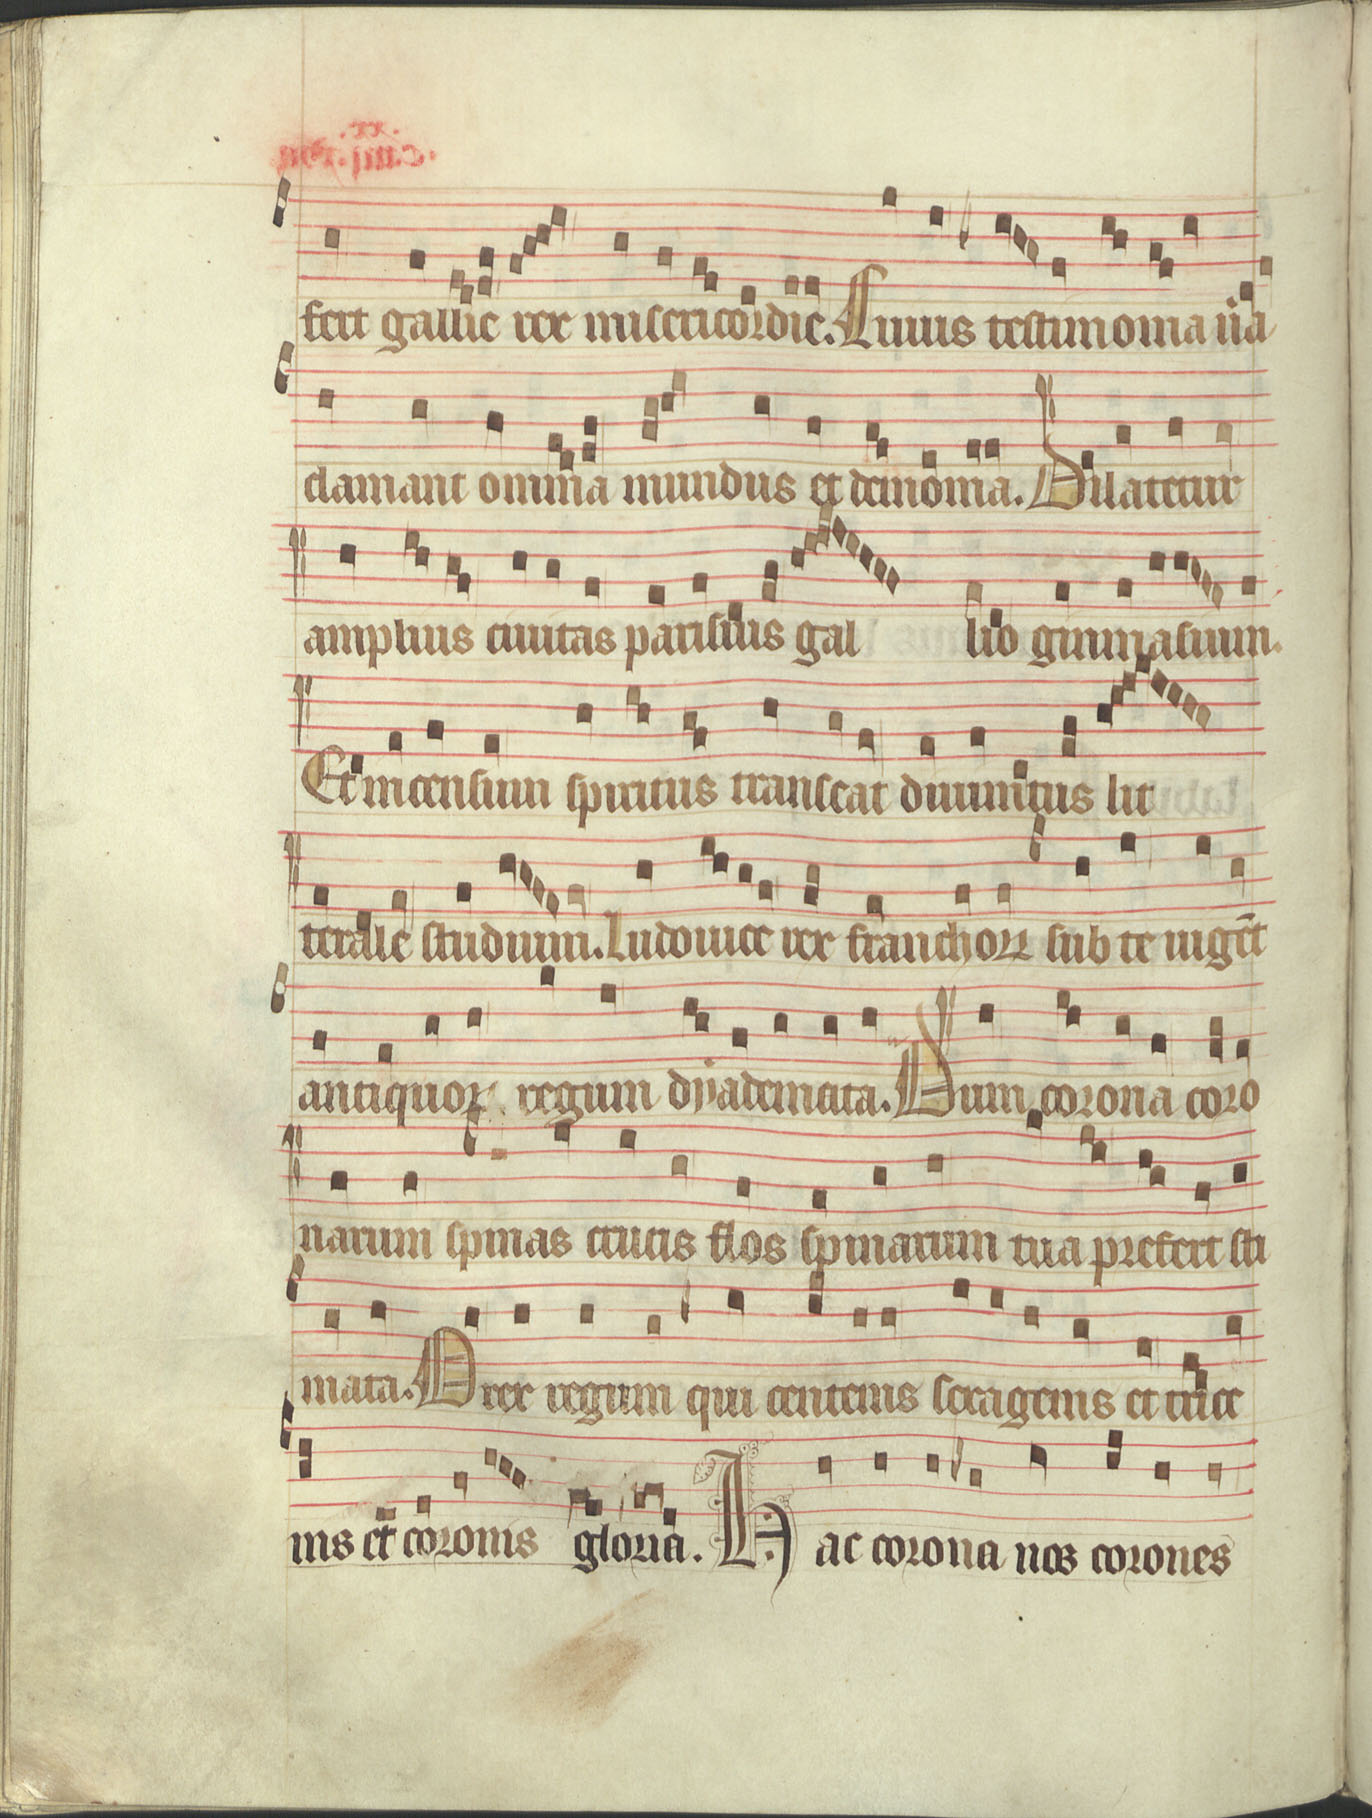 fert gallie rex misericordie. Cuius testimonia ūa
clamant omnia mundus et demonia. Dilatetur
amplius ciuitas parisius gal lio gimnasium.
Et incensum spiritus transeat diuinitus lit
terale studium. Ludouice rex franchoꝝ sub te uigēt
antiquoꝝ regum dyademata. Dum corona coro
narum spinas crucis flos spinarum tua prefert sti
mata. O rex regum qui centenis sexagenis et trice
nis et coronis gloria. Hac corona nos corones